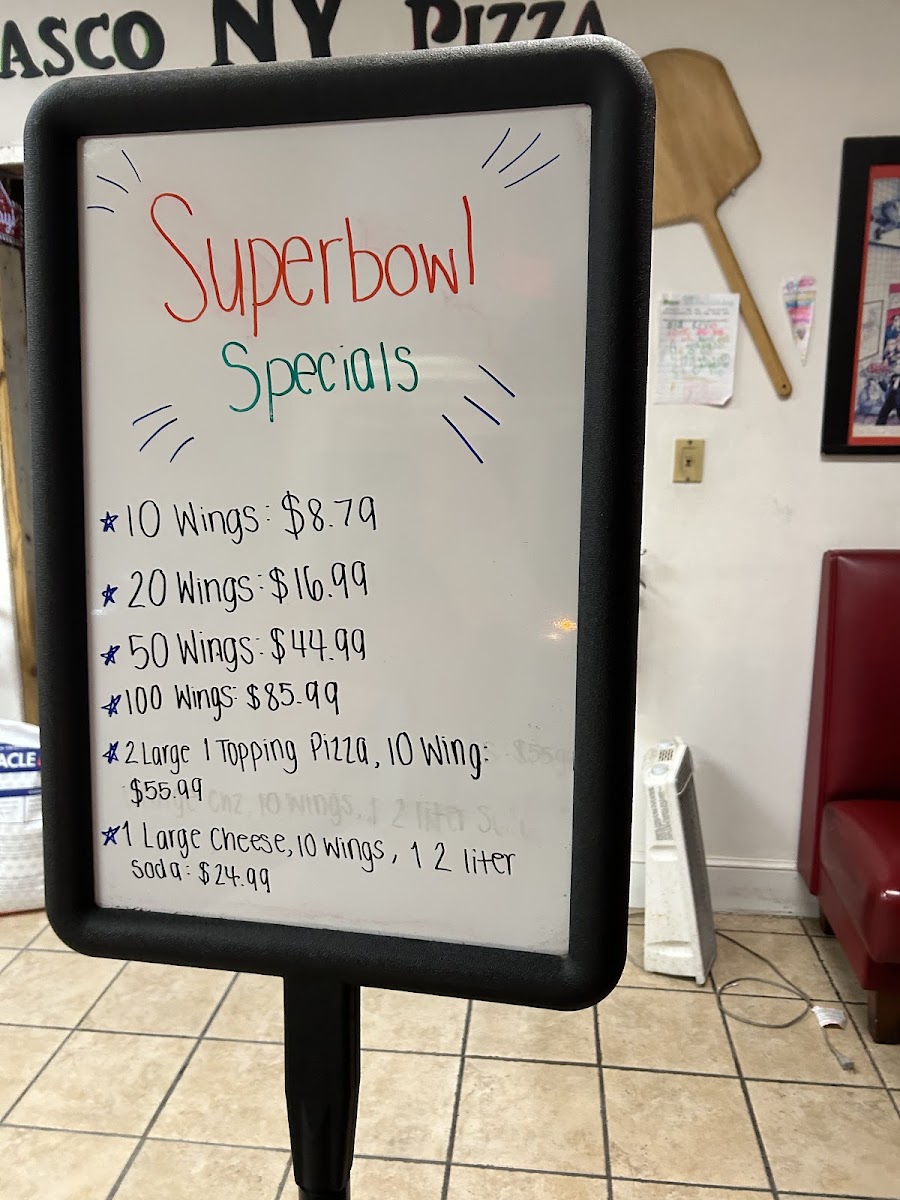 ASCO NY PIZZA
Superbowl
Specials
10 Wings: $8.79
20 Wings: $16.99
50 Wings: $44.99
100 Wings: $85.99
2 Large 1 Topping Pizza, 10 Wing:
$55.99
1 Large Cheese, 10 wings, 1 2 liter
soda: $24.99
ACLE